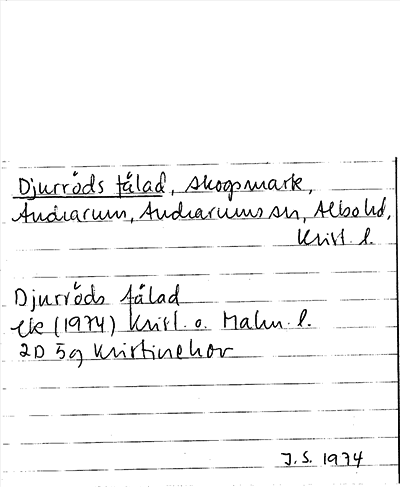 Djurröds fålad, skogsmark,
Andrarum, Andrarums sn, Albo hd,
Krist. l.
Djurröds fålad
ek (1974) Krist. o. Malm. l.
2D 5g Kristinehov
J.S. 1974